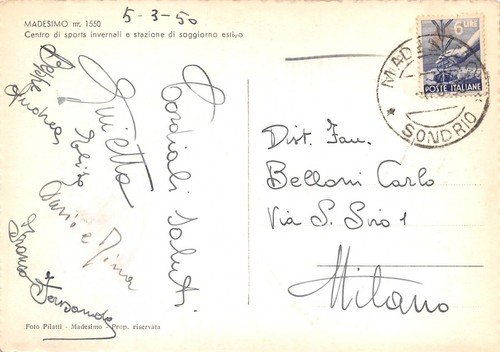 MADESIMO m. 1550
Centro di sports invernali e stazione di soggiorno estivo
5-3-50
Cordiali saluti.
Ginetto
Dario e Nina
Franco
6 LIRE
POSTE ITALIANE
MAD
SONDRIO
Dist. Fam.
Belloni Carlo
Via S. Siro 1
Milano
Foto Pilatti - Madesimo - Prop. riservata